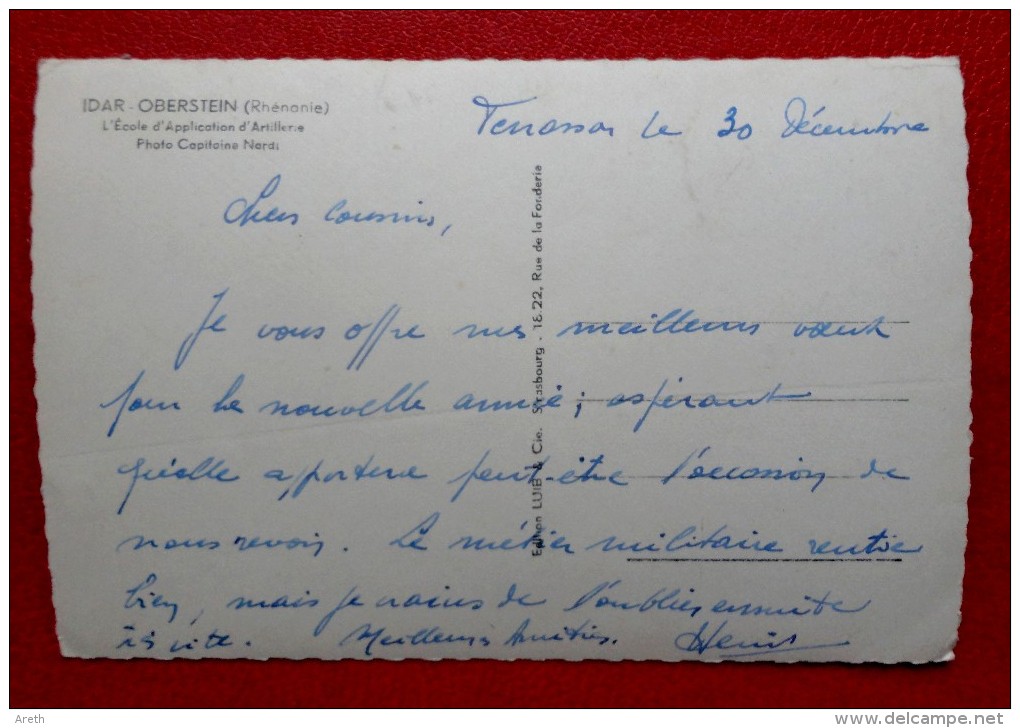 IDAR-OBERSTEIN (Rhénanie)
L'École d'Application d'Artillerie
Photo Capitaine Nardi
Terrasson le 30 Décembre
Chers cousins,
Je vous offre mes meilleurs vœux
pour la nouvelle année ; espérant
qu'elle apportera peut-être l'occasion de
nous revoir. Le métier militaire rentre
bien, mais je crains de l'oublier ensuite
très vite. Meilleures Amitiés. Henri
Edition LUIB & Cie. Strasbourg - 18.22, Rue de la Fonderie
Areth
www.delcampe.net